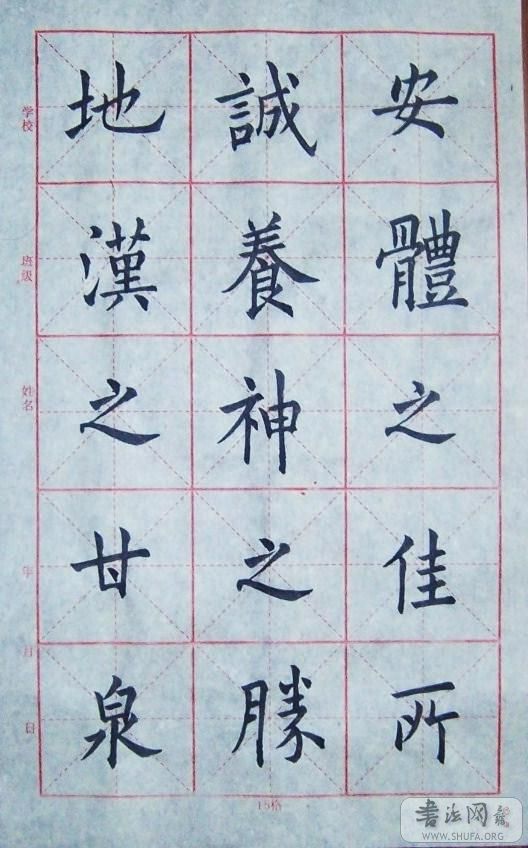 安體之佳所
誠養神之勝
地漢之甘泉
学校
班級
姓名
年
月
日
15格
書法网
WWW.SHUFA.ORG